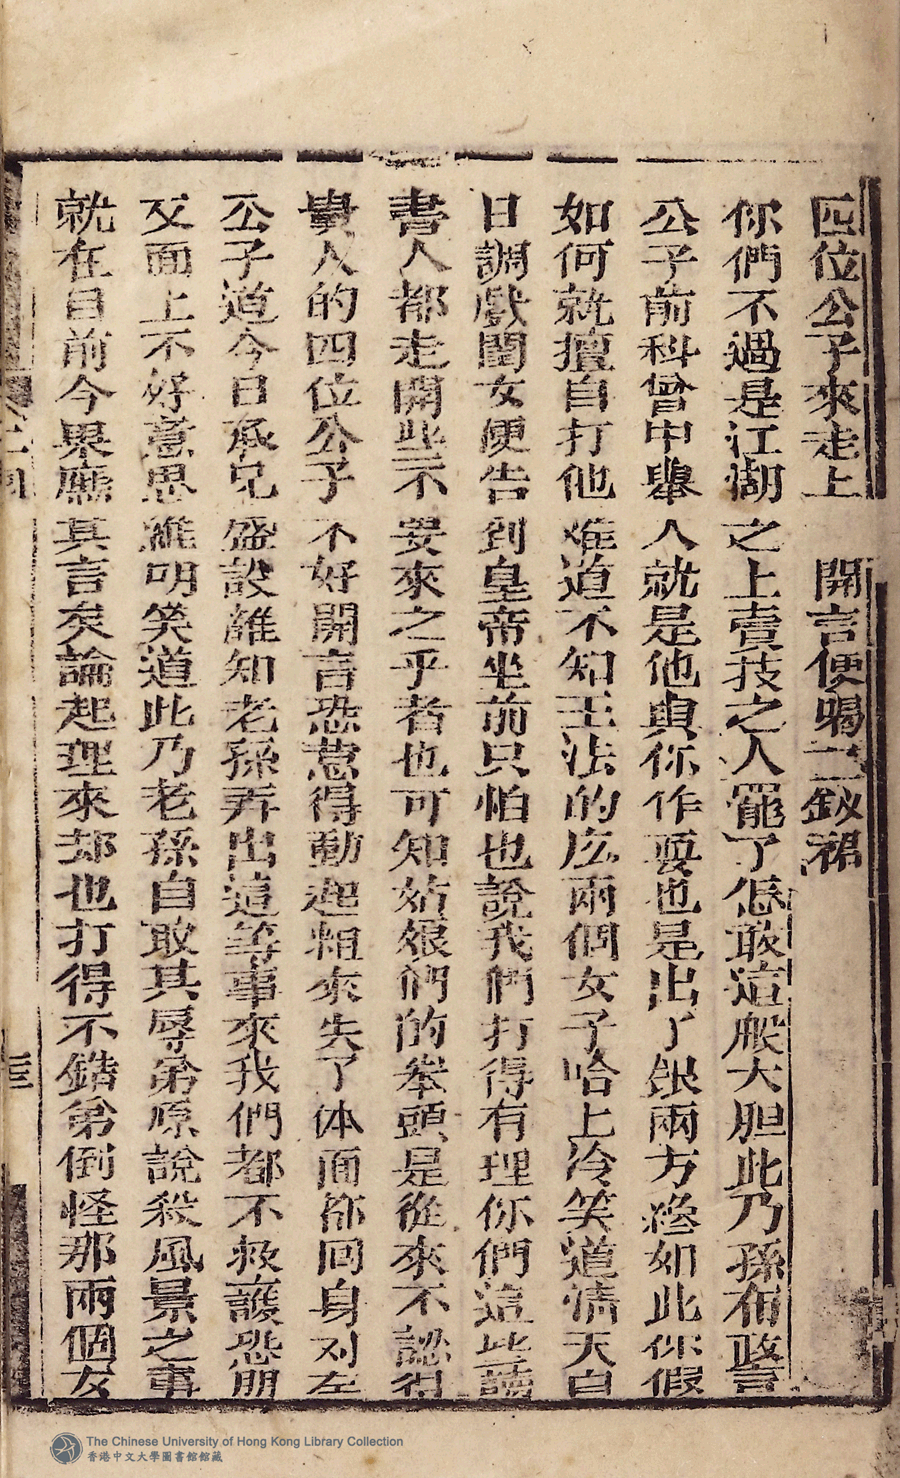 四位公子來走上　開言便喝二釵裙
你們不過是江湖之上賣技之人罷了怎敢這般大胆此乃孫布政
公子前科曾中舉人就是他與你作耍也是出了銀兩方纔如此你假
如何就擅自打他难道不知王法的庅兩個女子哈上冷笑道清天白
日調戲閨女便告到皇帝坐前只怕也說我們打得有理你們這些讀
書人都走開些不要來之乎者也可知姑娘們的拳頭是從來不認得
貴人的四位公子不好開言恐惹得動起粗來失了体面卻回身对左
公子道今日承兄盛設誰知老孫弄出這等事來我們都不救護恐朋
友面上不好意思維明笑道此乃老孫自取其辱弟原說殺風景之事
就在目前今果應其言矣論起理來却也打得不錯弟倒怪那兩個女
The Chinese University of Hong Kong Library Collection
香港中文大學圖書館館藏